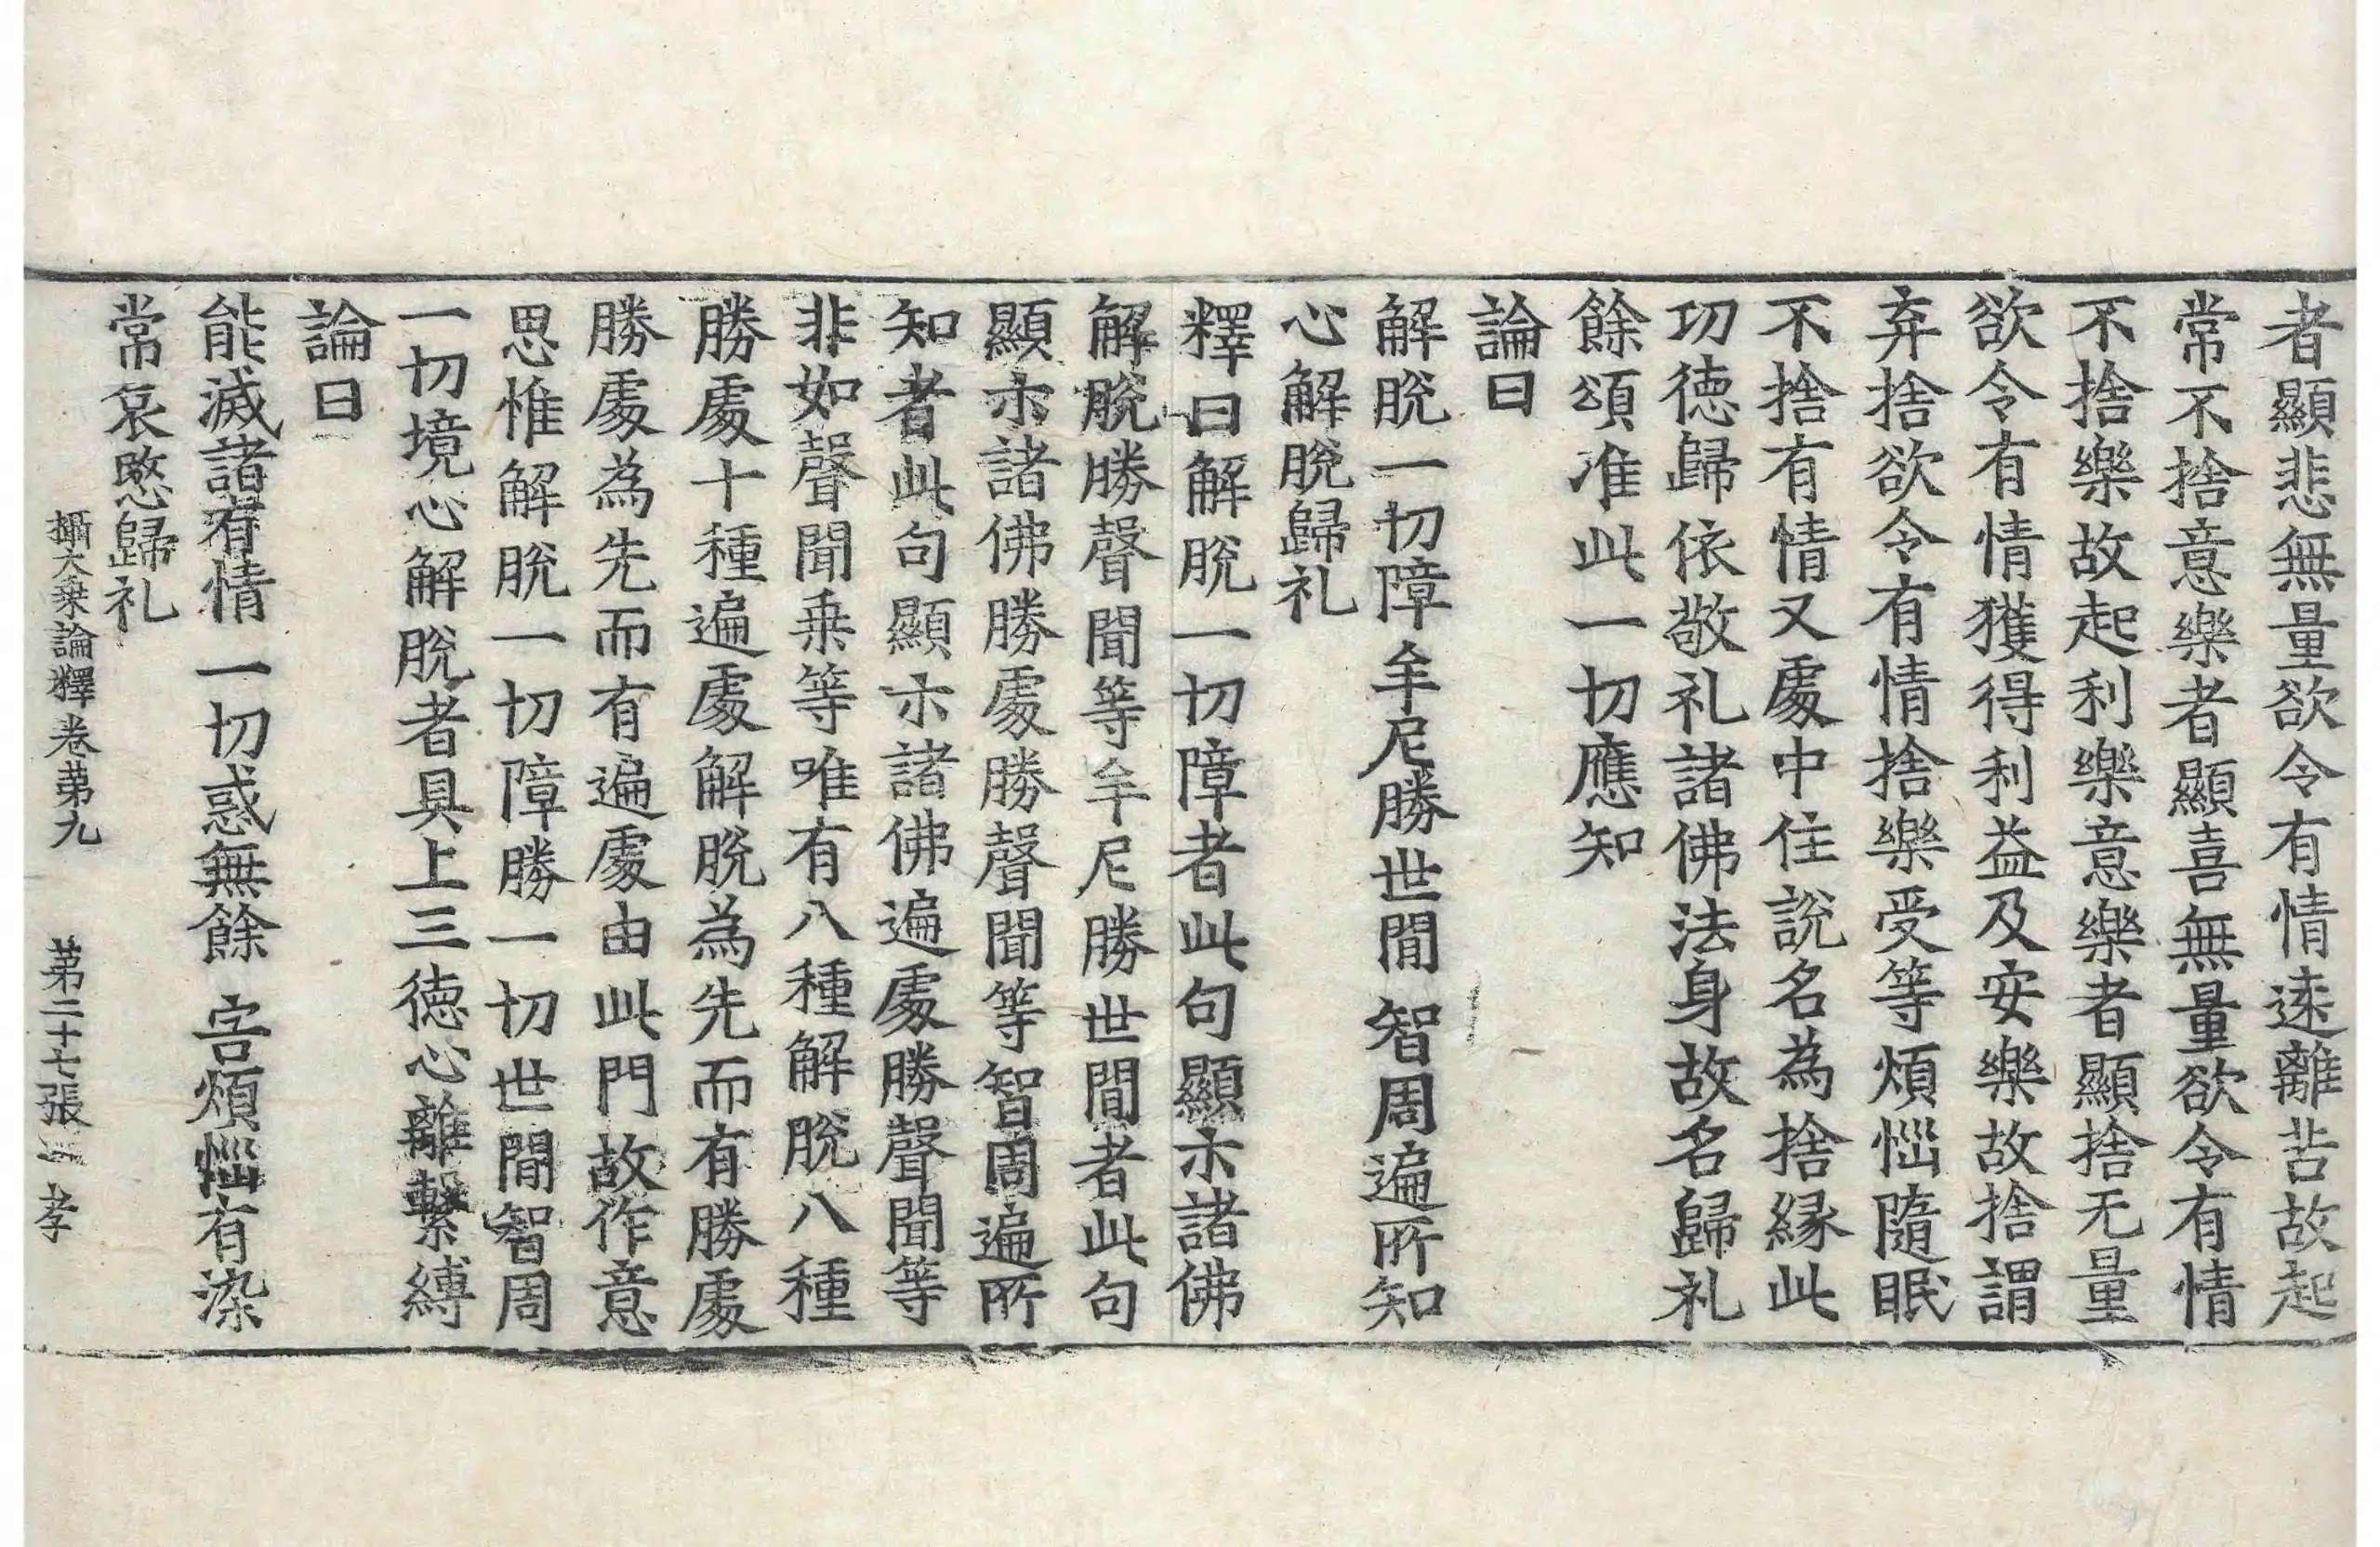 者顯悲無量欲令有情遠離苦故起
常不捨意樂者顯喜無量欲令有情
不捨樂故起利樂意樂者顯捨无量
欲令有情獲得利益及安樂故捨謂
弃捨欲令有情捨樂受等煩惱隨眠
不捨有情又處中住說名為捨縁此
功徳歸依敬礼諸佛法身故名歸礼
餘頌准此一切應知
論曰
解脫一切障 牟尼勝世間 智周遍所知
心解脫歸礼
釋曰解脫一切障者此句顯示諸佛
解脫勝聲聞等牟尼勝世間者此句
顯示諸佛勝處勝聲聞等智周遍所
知者此句顯示諸佛遍處勝聲聞等
非如聲聞乗等唯有八種解脫八種
勝處十種遍處解脫為先而有勝處
勝處為先而有遍處由此門故作意
思惟解脫一切障勝一切世間智周
一切境心解脫者具上三徳心離繫縛
論曰
能滅諸有情 一切惑無餘 害煩惱有染
常哀愍歸礼
攝大乗論釋卷第九 第二十七張 孝